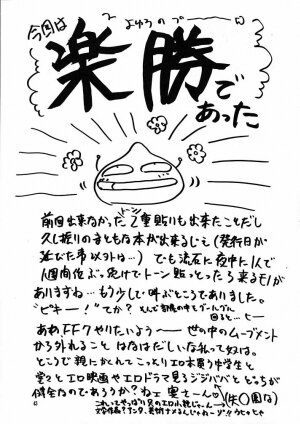 今回は
よゆうのプー
楽勝で
あった
前回出来なかった2重貼りも出来たことだし
トーン
久し振りのまともな本が出来るしェ(発行日が
延びた事以外は…)でも流石に夜中に1人で
1週間位ぶっ続けでトーン貼っとったら来るモノが
ありますね…もう少しで叫ぶところでありました。
"ピキー!"てか?
あぁFF7やりたいよう〜世の中のムーブメント
から外れること はなはだしいな私って奴は。
ところで親にかくれてこっそりエロ本買う中学生と
堂々とエロ映画やエロドラマ見るジジババと どちらが
健全なのであろうか?ねェ 実さーん